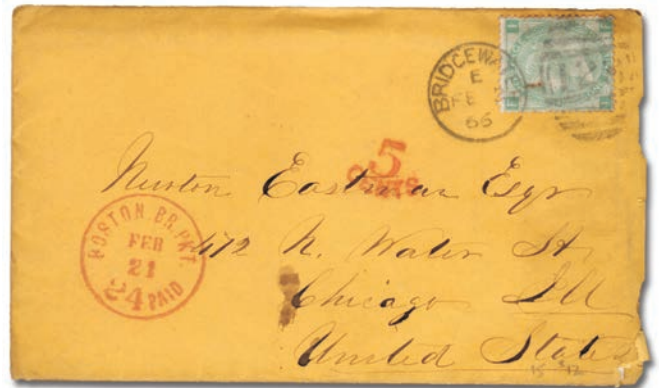 BRIDGEWA
E
FE
66
5
CENTS
Newton Eastman Esqr
472 N. Water St
Chicago Ill
United States
BOSTON BR. PKT.
FEB
21
24 PAID
15 12